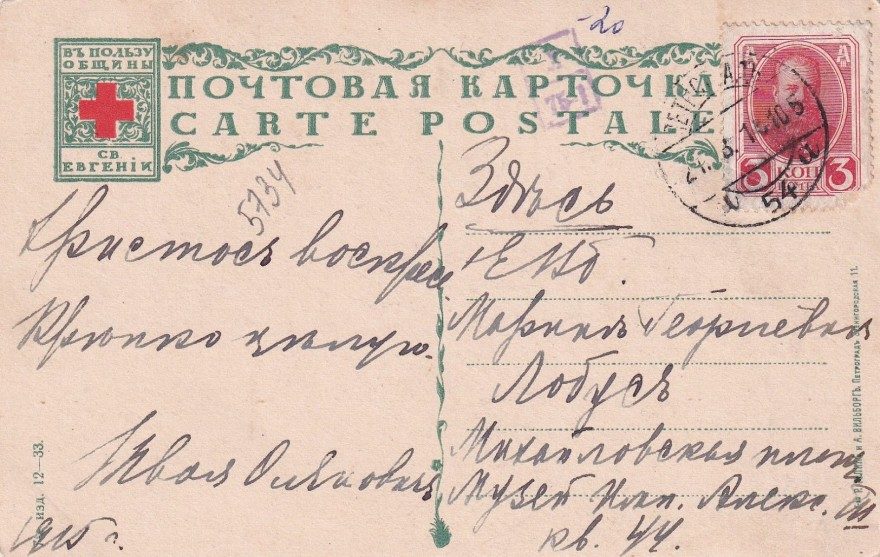 ВЪ ПОЛЬЗУ
ОБЩИНЫ
СВ.
ЕВГЕНІИ
ПОЧТОВАЯ КАРТОЧКА
CARTE POSTALE
20
5734
3 КОП 3
54
Христосъ воскресе
Крѣпко цѣлую.
Твоя
1915 г.
Здѣсь
Е К Пб.
Георгіевна
Лобусъ
Михайловская площ
Музей Имп. Алекс. III
кв. 44.
изд. 12—33.
и А. ВИЛЬБОРГЪ. ПЕТРОГРАДЪ, 11.